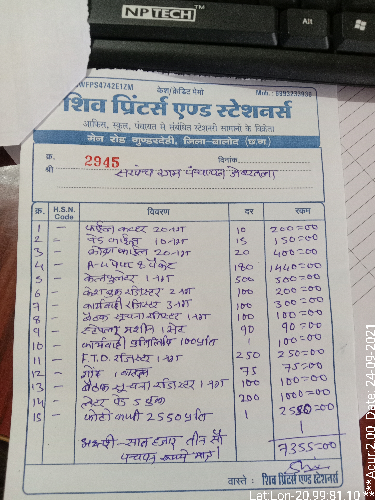 NPTECH™
Alt
WFPS4742E1ZM केश/क्रेडिट मेमो Mob.: 9993233930
शिव प्रिंटर्स एण्ड स्टेशनर्स
आफिस, स्कूल, पंचायत से संबंधित स्टेशनरी सामानों के विक्रेता
मेन रोड गुण्डरदेही, जिला-बालोद (छ.ग.)
क्र. 2945 दिनांक
श्री सरपंच ग्राम पंचायत
क्र. H.S.N. Code विवरण दर रकम
1 — फाईल कव्हर 20 नग 10 200=00
2 — 10 नग 15 150=00
3 — 20 नग 20 400=00
4 — A-4 पेपर 8 पैकेट 180 1440=00
5 — केलकुलेटर 1 नग 500 500=00
6 — केश बुक रजिस्टर 2 नग 100 200=00
7 — कार्यवाही रजिस्टर 3 नग 100 300=00
8 — बैठक सूचना रजिस्टर 1 नग 100 100=00
9 — स्टेपलर मशीन 1 सेट 90 90=00
10 — कार्यवाही प्रतिलिपि 100 प्रति 1 100=00
11 — F.T.O. रजिस्टर 1 नग 250 250=00
12 — गोंद 1 75 75=00
13 — बैठक सूचना रजिस्टर 1 नग 100 100=00
14 — लेटर पेड 5 बुक 200 1000=00
15 — फोटो कापी 2550 प्रति 1 2550=00
अक्षरी - सात हजार तीन सौ 7355=00
पचपन रूपये मात्र।
वास्ते : शिव प्रिंटर्स एण्ड स्टेशनर्स
Lat:Lon-20.99:81.10
***Acur:2.00 Date: 24-09-2021